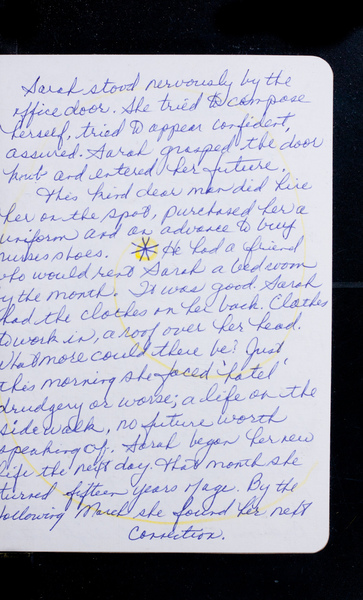 Sarah stood nervously by the
office door. She tried to compose
herself, tried to appear confident,
assured. Sarah grasped the door
knob and entered her future.
This kind dear man did hire
her on the spot, purchased her a
uniform and an advance to buy
nurses shoes. He had a friend
who would rent Sarah a bedroom
by the month. It was good. Sarah
had the clothes on her back. Clothes
to work in, a roof over her head.
What more could there be? Just
this morning she faced 'hotel'
drudgery or worse; a life on the
sidewalk, no future worth
speaking of. Sarah began her new
life the next day. That month she
turned fifteen years of age. By the
following March she found her next
connection.